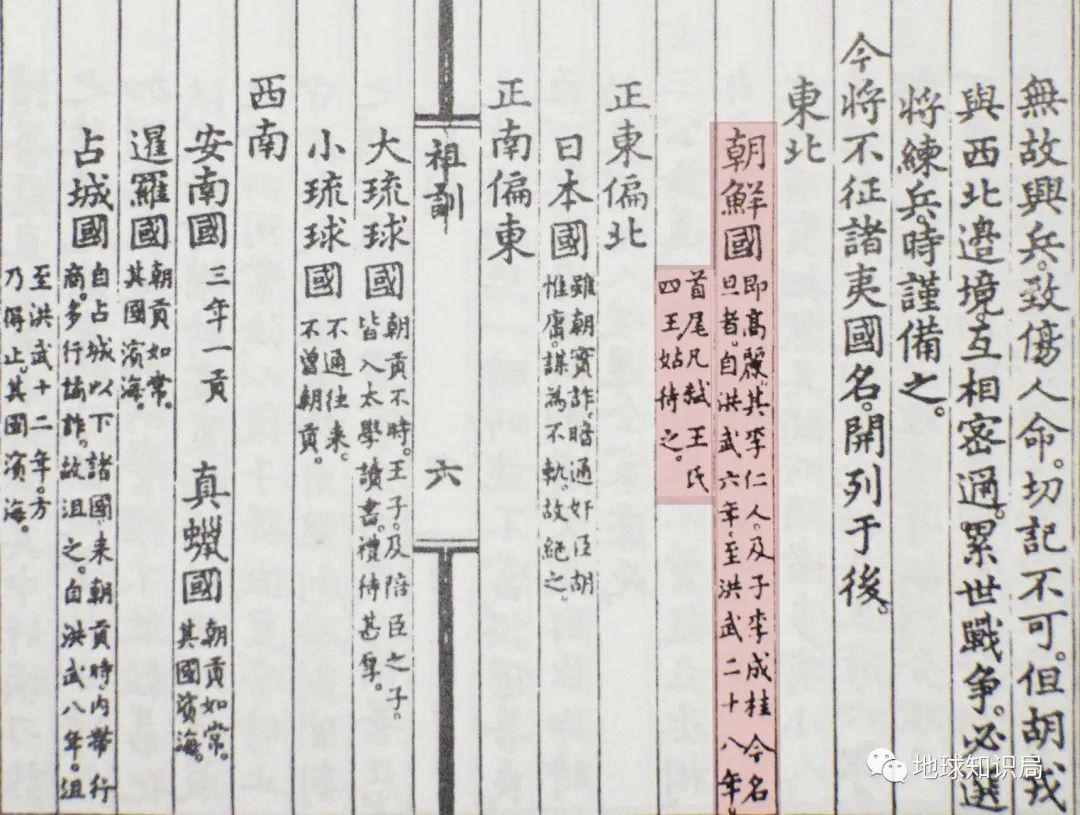 無故興兵。致傷人命。切記不可。但胡戎
與西北邊境。互相密邇。累世戰爭。必選
將練兵。時謹備之。
今將不征諸夷國名。開列于後。
東北
朝鮮國
即高麗。其李仁人。及子李成桂今名
旦者。自洪武六年。至洪武二十八年。
首尾凡弒王氏
四王。姑待之。
正東偏北
日本國
雖朝實詐。暗通奸臣胡
惟庸。謀為不軌。故絕之。
正南偏東
祖訓
六
大琉球國
朝貢不時。王子。及陪臣之子。
皆入太學讀書。禮待甚厚。
小琉球國
不通往来。
不曾朝貢。
西南
安南國
三年一貢
真蠟國
朝貢如常。
其國濱海。
暹羅國
朝貢如常。
其國濱海。
占城國
自占城以下諸國来朝貢時。内帶行
商。多行譎詐。故沮之。自洪武八年。沮
至洪武十二年。方
乃得止。其國濱海。
地球知识局